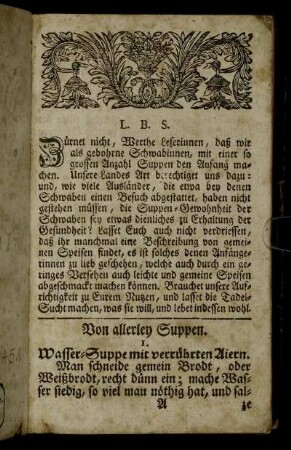 L. B. S.
Zürnet nicht, Werthe Leserinnen, daß wir
als gebohrne Schwäbinnen, mit einer so
grossen Anzahl Suppen den Anfang ma-
chen. Unsere Landes Art berechtiget uns dazu:
und, wie viele Ausländer, die etwa bey denen
Schwaben einen Besuch abgestattet, haben nicht
gestehen müssen, die Suppen-Gewohnheit der
Schwaben sey etwas dienliches zu Erhaltung der
Gesundheit? Lasset Euch auch nicht verdriessen,
daß ihr manchmal eine Beschreibung von gemei-
nen Speisen findet, es ist solches denen Anfänge-
rinnen zu lieb geschehen, welche auch durch ein ge-
ringes Versehen auch leichte und gemeine Speisen
abgeschmackt machen können. Brauchet unsere Auf-
richtigkeit zu Eurem Nutzen, und lasset die Tadel-
Sucht machen, was sie will, und lebet indessen wohl.
Von allerley Suppen.
1.
Wasser-Suppe mit verrührten Aiern.
Man schneide gemein Brodt, oder
Weißbrodt, recht dünn ein; mache Was-
ser siedig, so viel man nöthig hat, und sal-
A